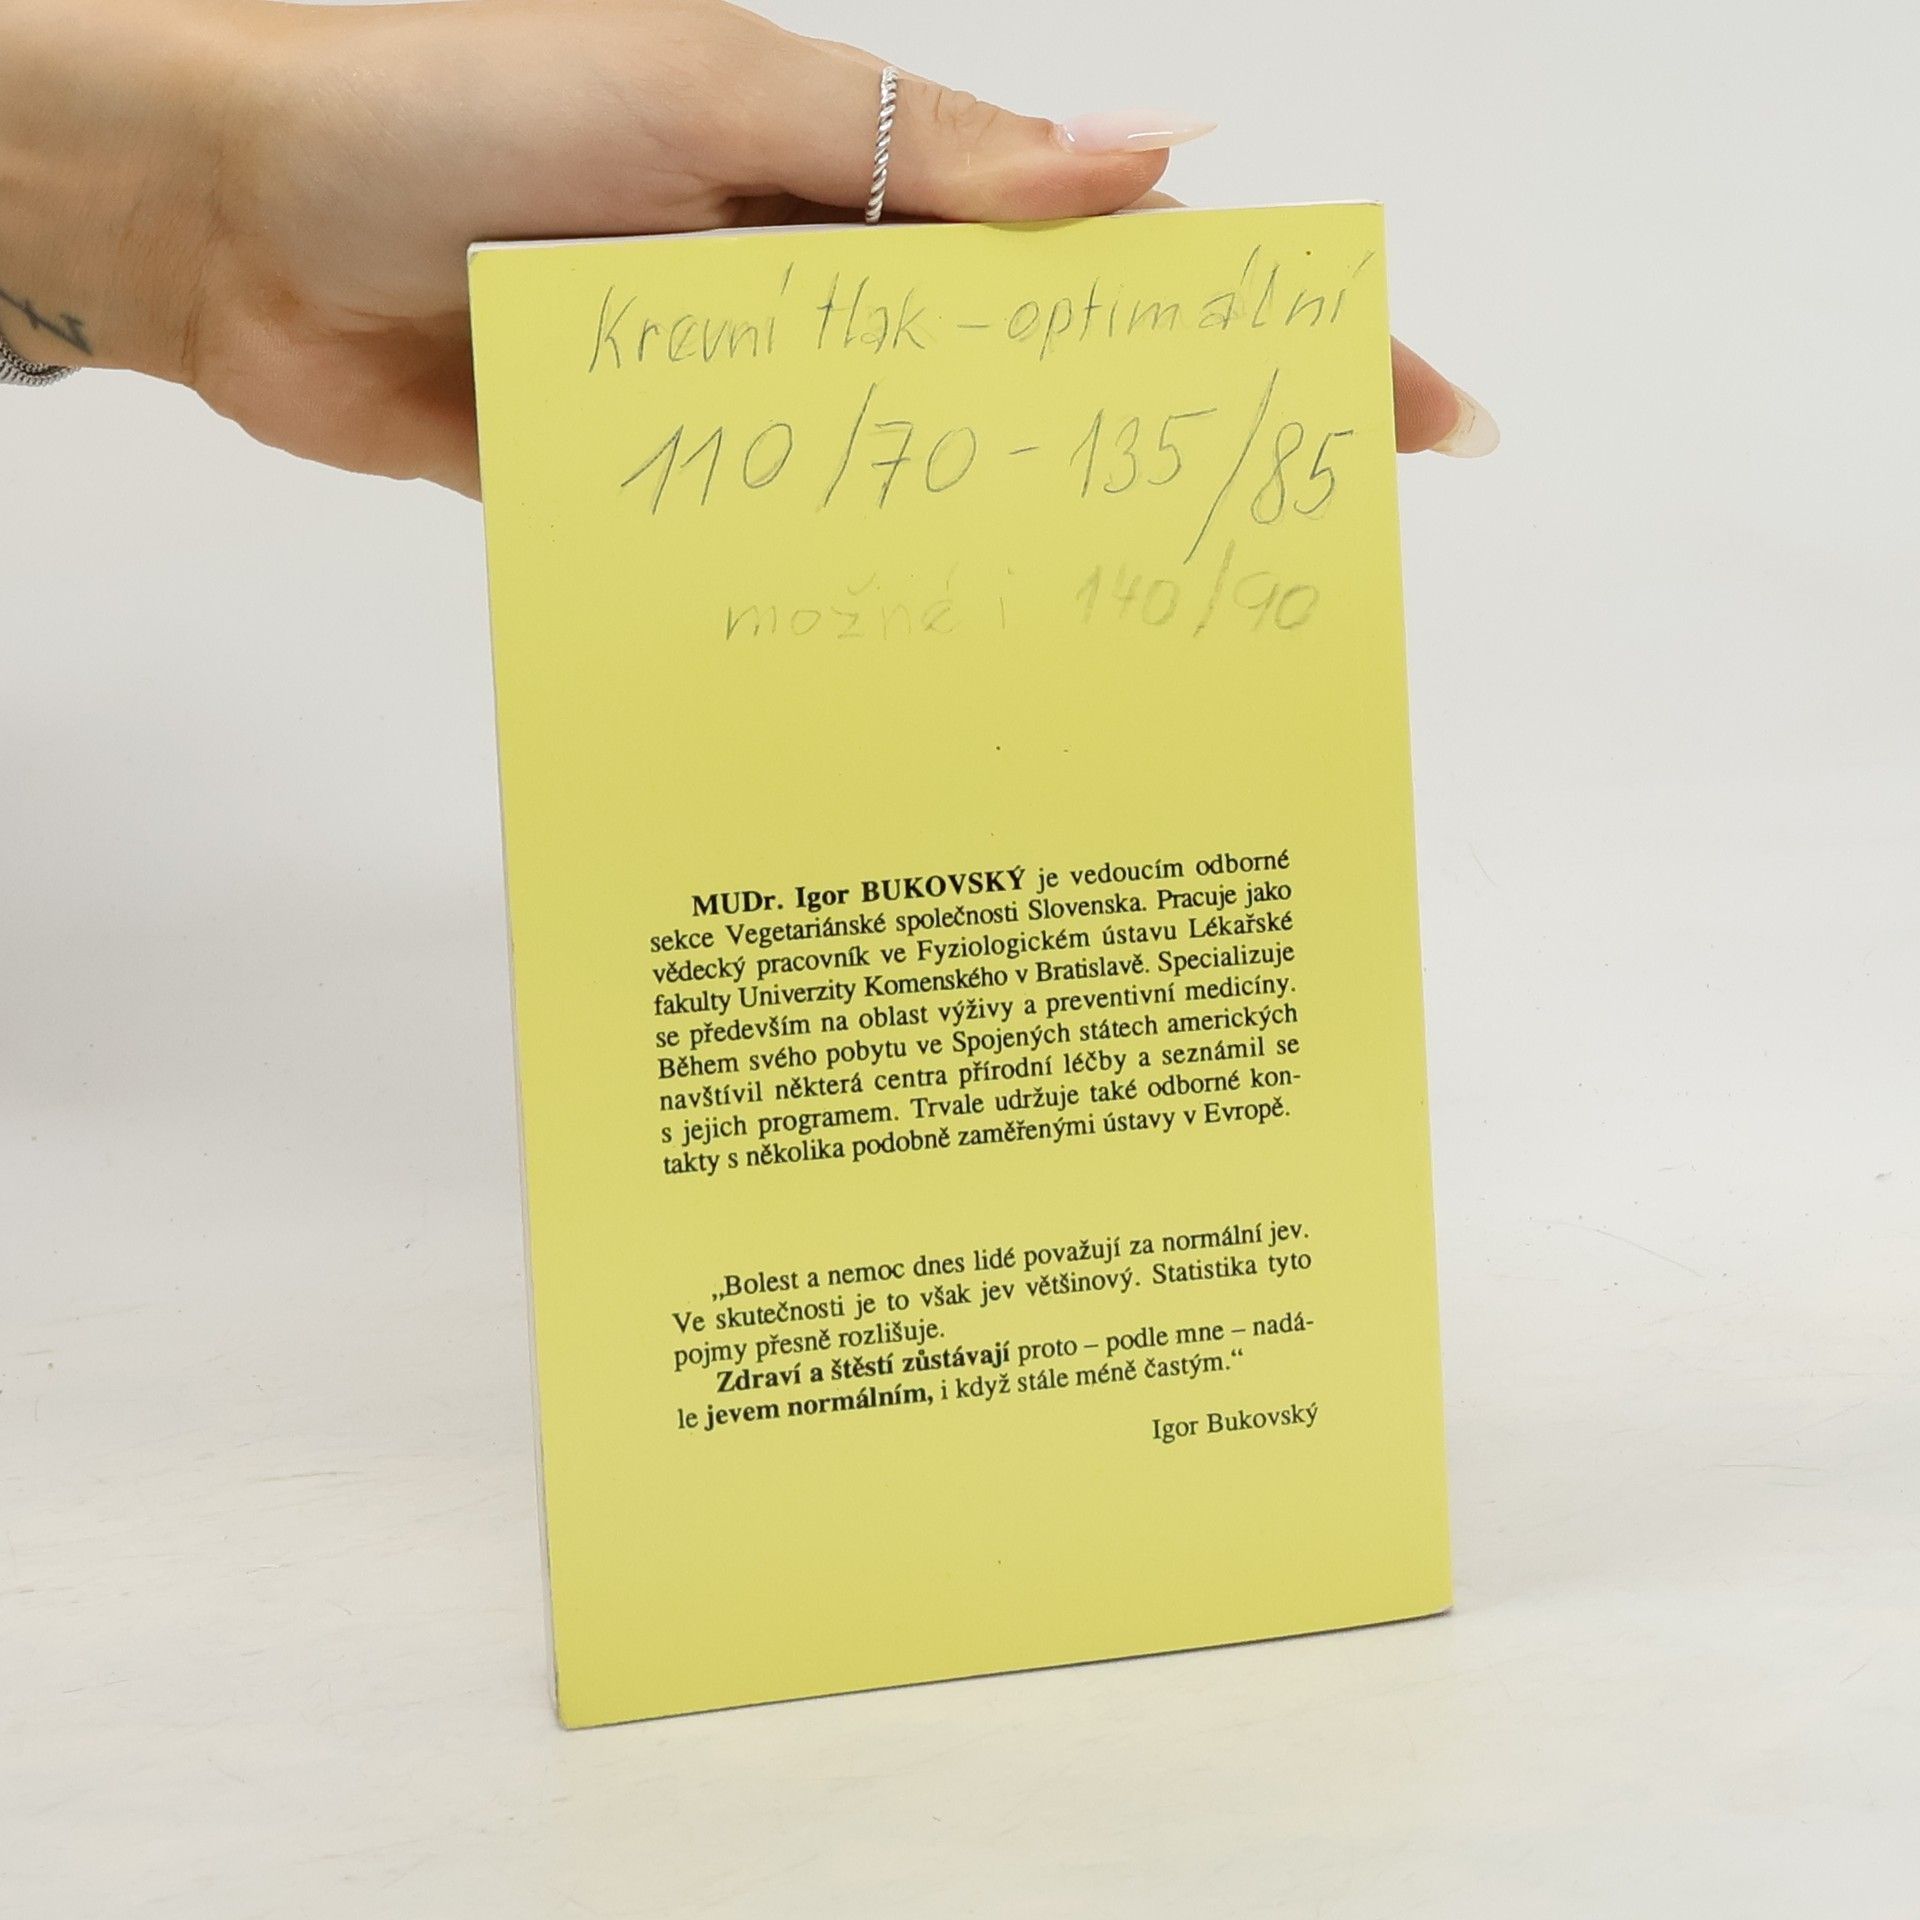 Krevní tlak - optimální
110/70 - 135/85
možné i 140/90
MUDr. Igor BUKOVSKÝ je vedoucím odborné
sekce Vegetariánské společnosti Slovenska. Pracuje jako
vědecký pracovník ve Fyziologickém ústavu Lékařské
fakulty Univerzity Komenského v Bratislavě. Specializuje
se především na oblast výživy a preventivní medicíny.
Během svého pobytu ve Spojených státech amerických
navštívil některá centra přírodní léčby a seznámil se
s jejich programem. Trvale udržuje také odborné kon-
takty s několika podobně zaměřenými ústavy v Evropě.
„Bolest a nemoc dnes lidé považují za normální jev.
Ve skutečnosti je to však jev většinový. Statistika tyto
pojmy přesně rozlišuje.
Zdraví a štěstí zůstávají proto – podle mne – nadá-
le jevem normálním, i když stále méně častým.“
Igor Bukovský